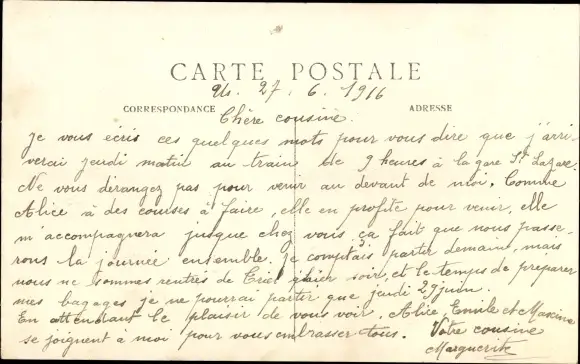 CARTE POSTALE
Us. 27. 6. 1916
CORRESPONDANCE
ADRESSE
Chère cousine.
Je vous écris ces quelques mots pour vous dire que j'arri-
verai jeudi matin au train de 9 heures à la gare St Lazare.
Ne vous dérangez pas pour venir au devant de moi. Comme
Alice à des courses à faire, elle en profite pour venir, elle
m'accompagnera jusque chez vous ça fait que nous passe-
rons la journée ensemble. Je comptais partir demain, mais
nous ne sommes rentrés de Triel qu'hier soir, et le temps de préparer
mes bagages je ne pourrai partir que jeudi 29 juin.
En attendant le plaisir de vous voir, Alice, Emile et Maxime
se joignent à moi pour vous embrasser tous. Votre cousine
Marguerite